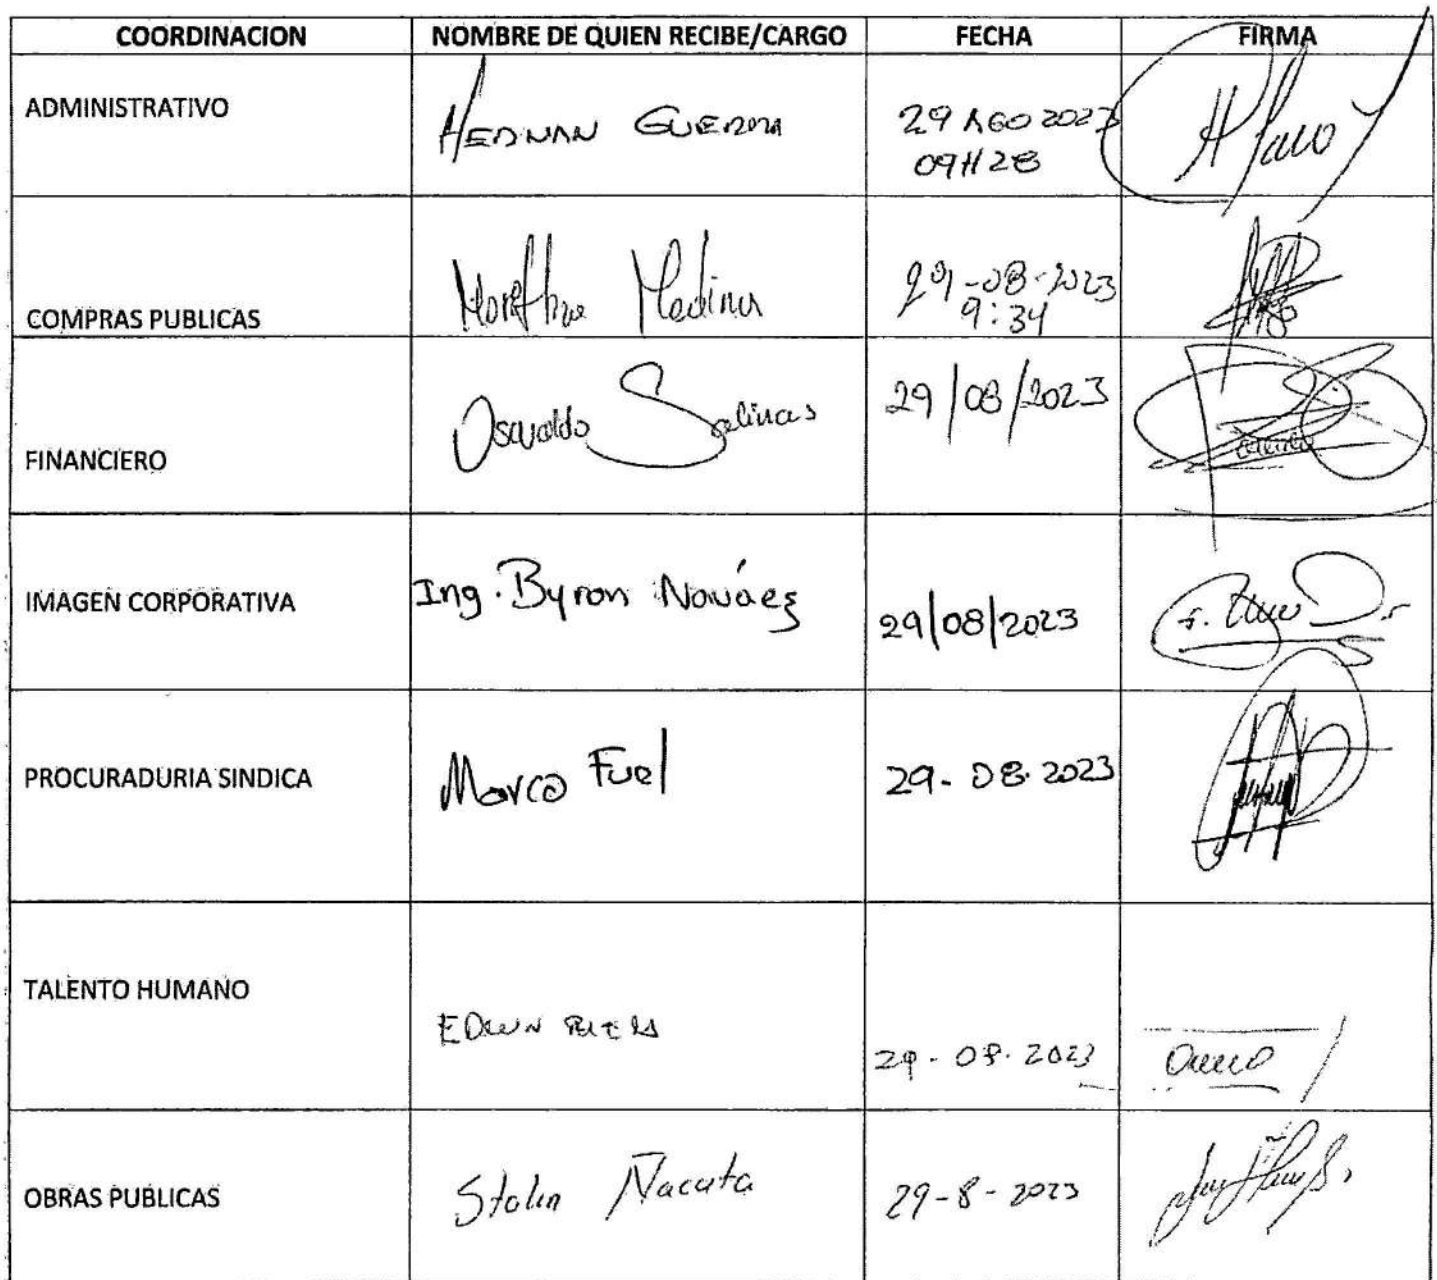 COORDINACION NOMBRE DE QUIEN RECIBE/CARGO FECHA FIRMA
ADMINISTRATIVO HERNAN GUERRA 29 AGO 2023
09H28
COMPRAS PUBLICAS Medina 29-08-2023
9:34
FINANCIERO Osvaldo Salinas 29/08/2023
IMAGEN CORPORATIVA Ing. Byron Nováez 29/08/2023
PROCURADURIA SINDICA Marco Fuel 29-08-2023
TALENTO HUMANO EDWIN 29-08-2023
OBRAS PUBLICAS Stalin Ñacata 29-8-2023